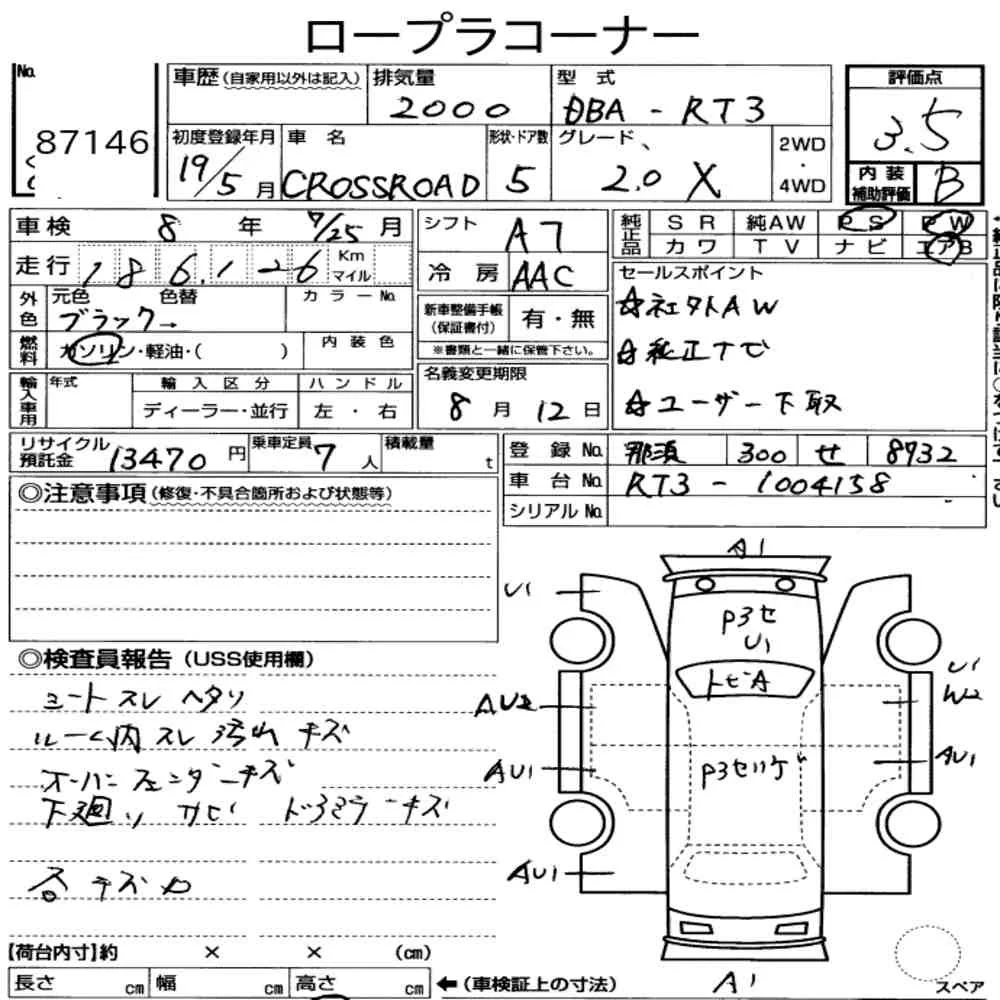 ロープラコーナー
No.
87146
車歴(自家用以外は記入)
排気量
2000
型式
DBA - RT3
評価点
3.5
初度登録年月
19/5月
車名
CROSSROAD
形状・ドア数
5
グレード
2.0 X
2WD
・
4WD
内装
補助評価
B
車検
8年 7/25月
シフト
A7
純正品
SR
純AW
PS
PW
カワ
TV
ナビ
エアB
走行
186,126
Km
マイル
冷房
AAC
セールスポイント
☆社外AW
☆純正ナビ
☆ユーザー下取
外色
元色
色替
ブラック→
カラーNo.
新車整備手帳
(保証書付)
有・無
※書類と一緒に保管下さい。
燃料
ガソリン・軽油・( )
内装色
名義変更期限
8月12日
輸入車用
年式
輸入区分
ハンドル
ディーラー・並行
左・右
リサイクル
預託金
13470円
乗車定員
7人
積載量
t
登録No.
那須
300
せ
8732
車台No.
RT3 - 1004158
シリアルNo.
◎注意事項(修復・不具合箇所および状態等)
◎検査員報告(USS使用欄)
シートスレ ヘタリ
ルーム内スレ 汚れ キズ
オーバーフェンダーキズ
下廻りサビ ドアミラーキズ
各キズ凹
A1
U1
P3セ
U1
トビA
U1
W2
AU2
AU1
P3セハゲ
AU1
AU1
A1
スペア
【荷台内寸】約 × × (cm)
長さ cm
幅 cm
高さ cm
←(車検証上の寸法)